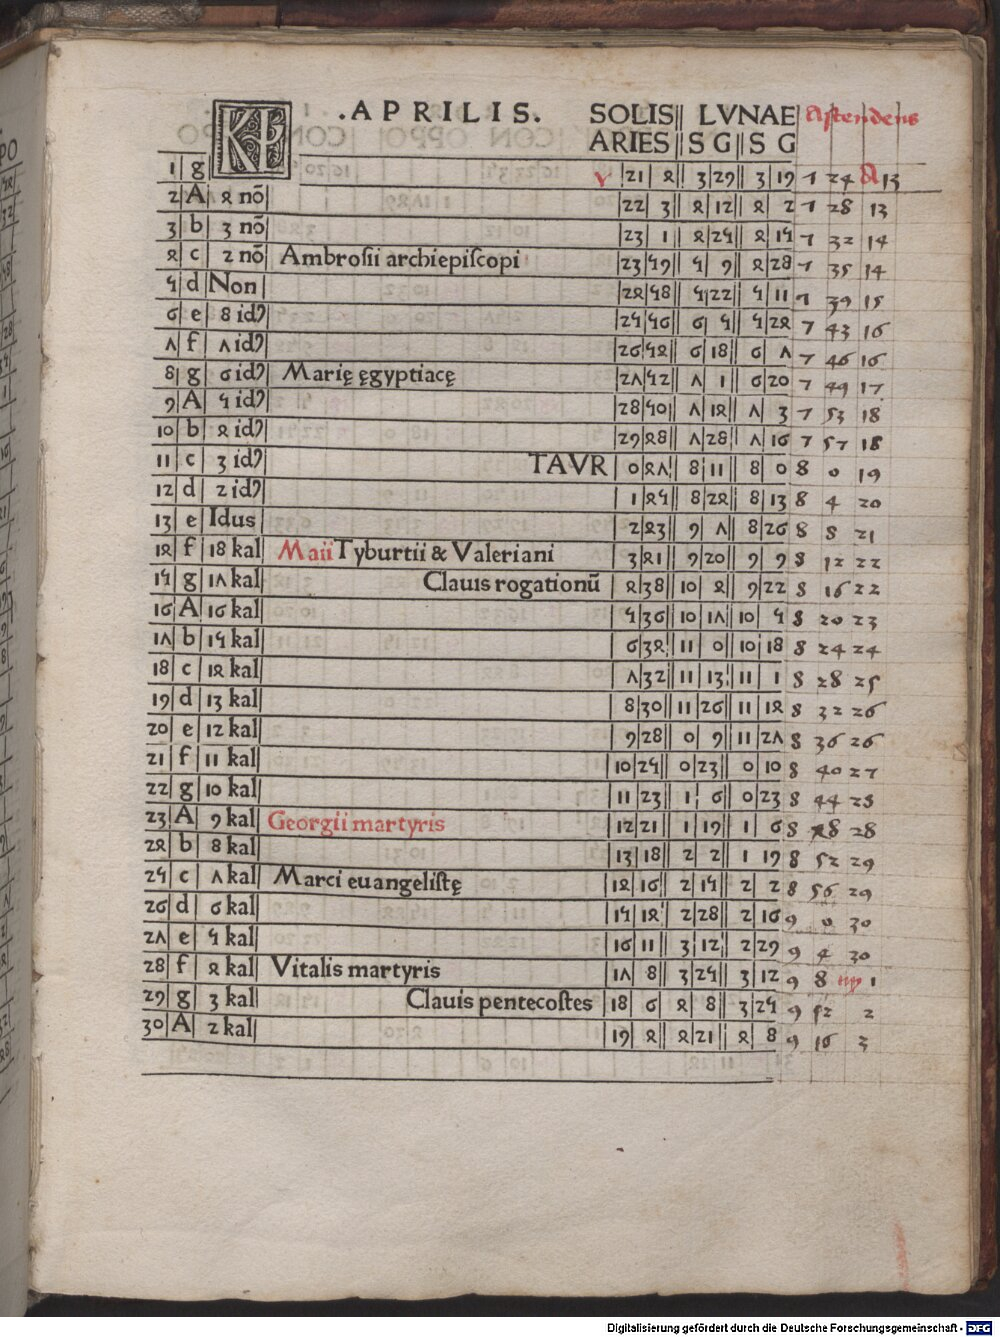 KL .APRILIS. SOLIS LVNAE Astendens
ARIES S G S G
1 g 21 4 3 29 3 19 7 24 13
2 A 4 nō 22 3 4 12 4 2 7 28 13
3 b 3 nō 23 1 4 25 4 15 7 32 14
4 c 2 nō Ambrosii archiepiscopi 23 59 5 9 4 28 7 35 14
5 d Non 24 58 5 22 5 11 7 39 15
6 e 8 idꝰ 25 56 6 5 5 24 7 43 16
7 f 7 idꝰ 26 54 6 18 6 7 7 46 16
8 g 6 idꝰ Marię ęgyptiacę 27 52 7 1 6 20 7 49 17
9 A 5 idꝰ 28 50 7 14 7 3 7 53 18
10 b 4 idꝰ 29 48 7 28 7 16 7 57 18
11 c 3 idꝰ TAVR 0 47 8 11 8 0 8 0 19
12 d 2 idꝰ 1 45 8 24 8 13 8 4 20
13 e Idus 2 43 9 7 8 26 8 8 21
14 f 18 kal Maii Tyburtii & Valeriani 3 41 9 20 9 9 8 12 22
15 g 17 kal Clauis rogationū 4 38 10 4 9 22 8 16 22
16 A 16 kal 5 36 10 17 10 5 8 20 23
17 b 15 kal 6 34 11 0 10 18 8 24 24
18 c 14 kal 7 32 11 13 11 1 8 28 25
19 d 13 kal 8 30 11 26 11 14 8 32 26
20 e 12 kal 9 28 0 9 11 27 8 36 26
21 f 11 kal 10 25 0 23 0 10 8 40 27
22 g 10 kal 11 23 1 6 0 23 8 44 28
23 A 9 kal Georgii martyris 12 21 1 19 1 6 8 48 28
24 b 8 kal 13 18 2 2 1 19 8 52 29
25 c 7 kal Marci euangelistę 14 16 2 15 2 2 8 56 29
26 d 6 kal 15 14 2 28 2 16 9 0 30
27 e 5 kal 16 11 3 12 2 29 9 4 30
28 f 4 kal Vitalis martyris 17 8 3 25 3 12 9 8 ♍ 1
29 g 3 kal Clauis pentecostes 18 6 4 8 3 25 9 12 2
30 A 2 kal 19 4 4 21 4 8 9 16 3
Digitalisierung gefördert durch die Deutsche Forschungsgemeinschaft - DFG